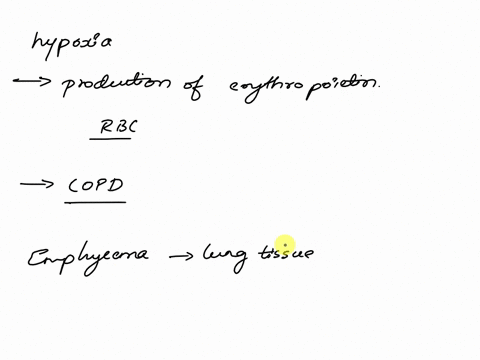 hypoxia
→ production of erythropoietin.
RBC
→ COPD
Emphyema → lung tissue